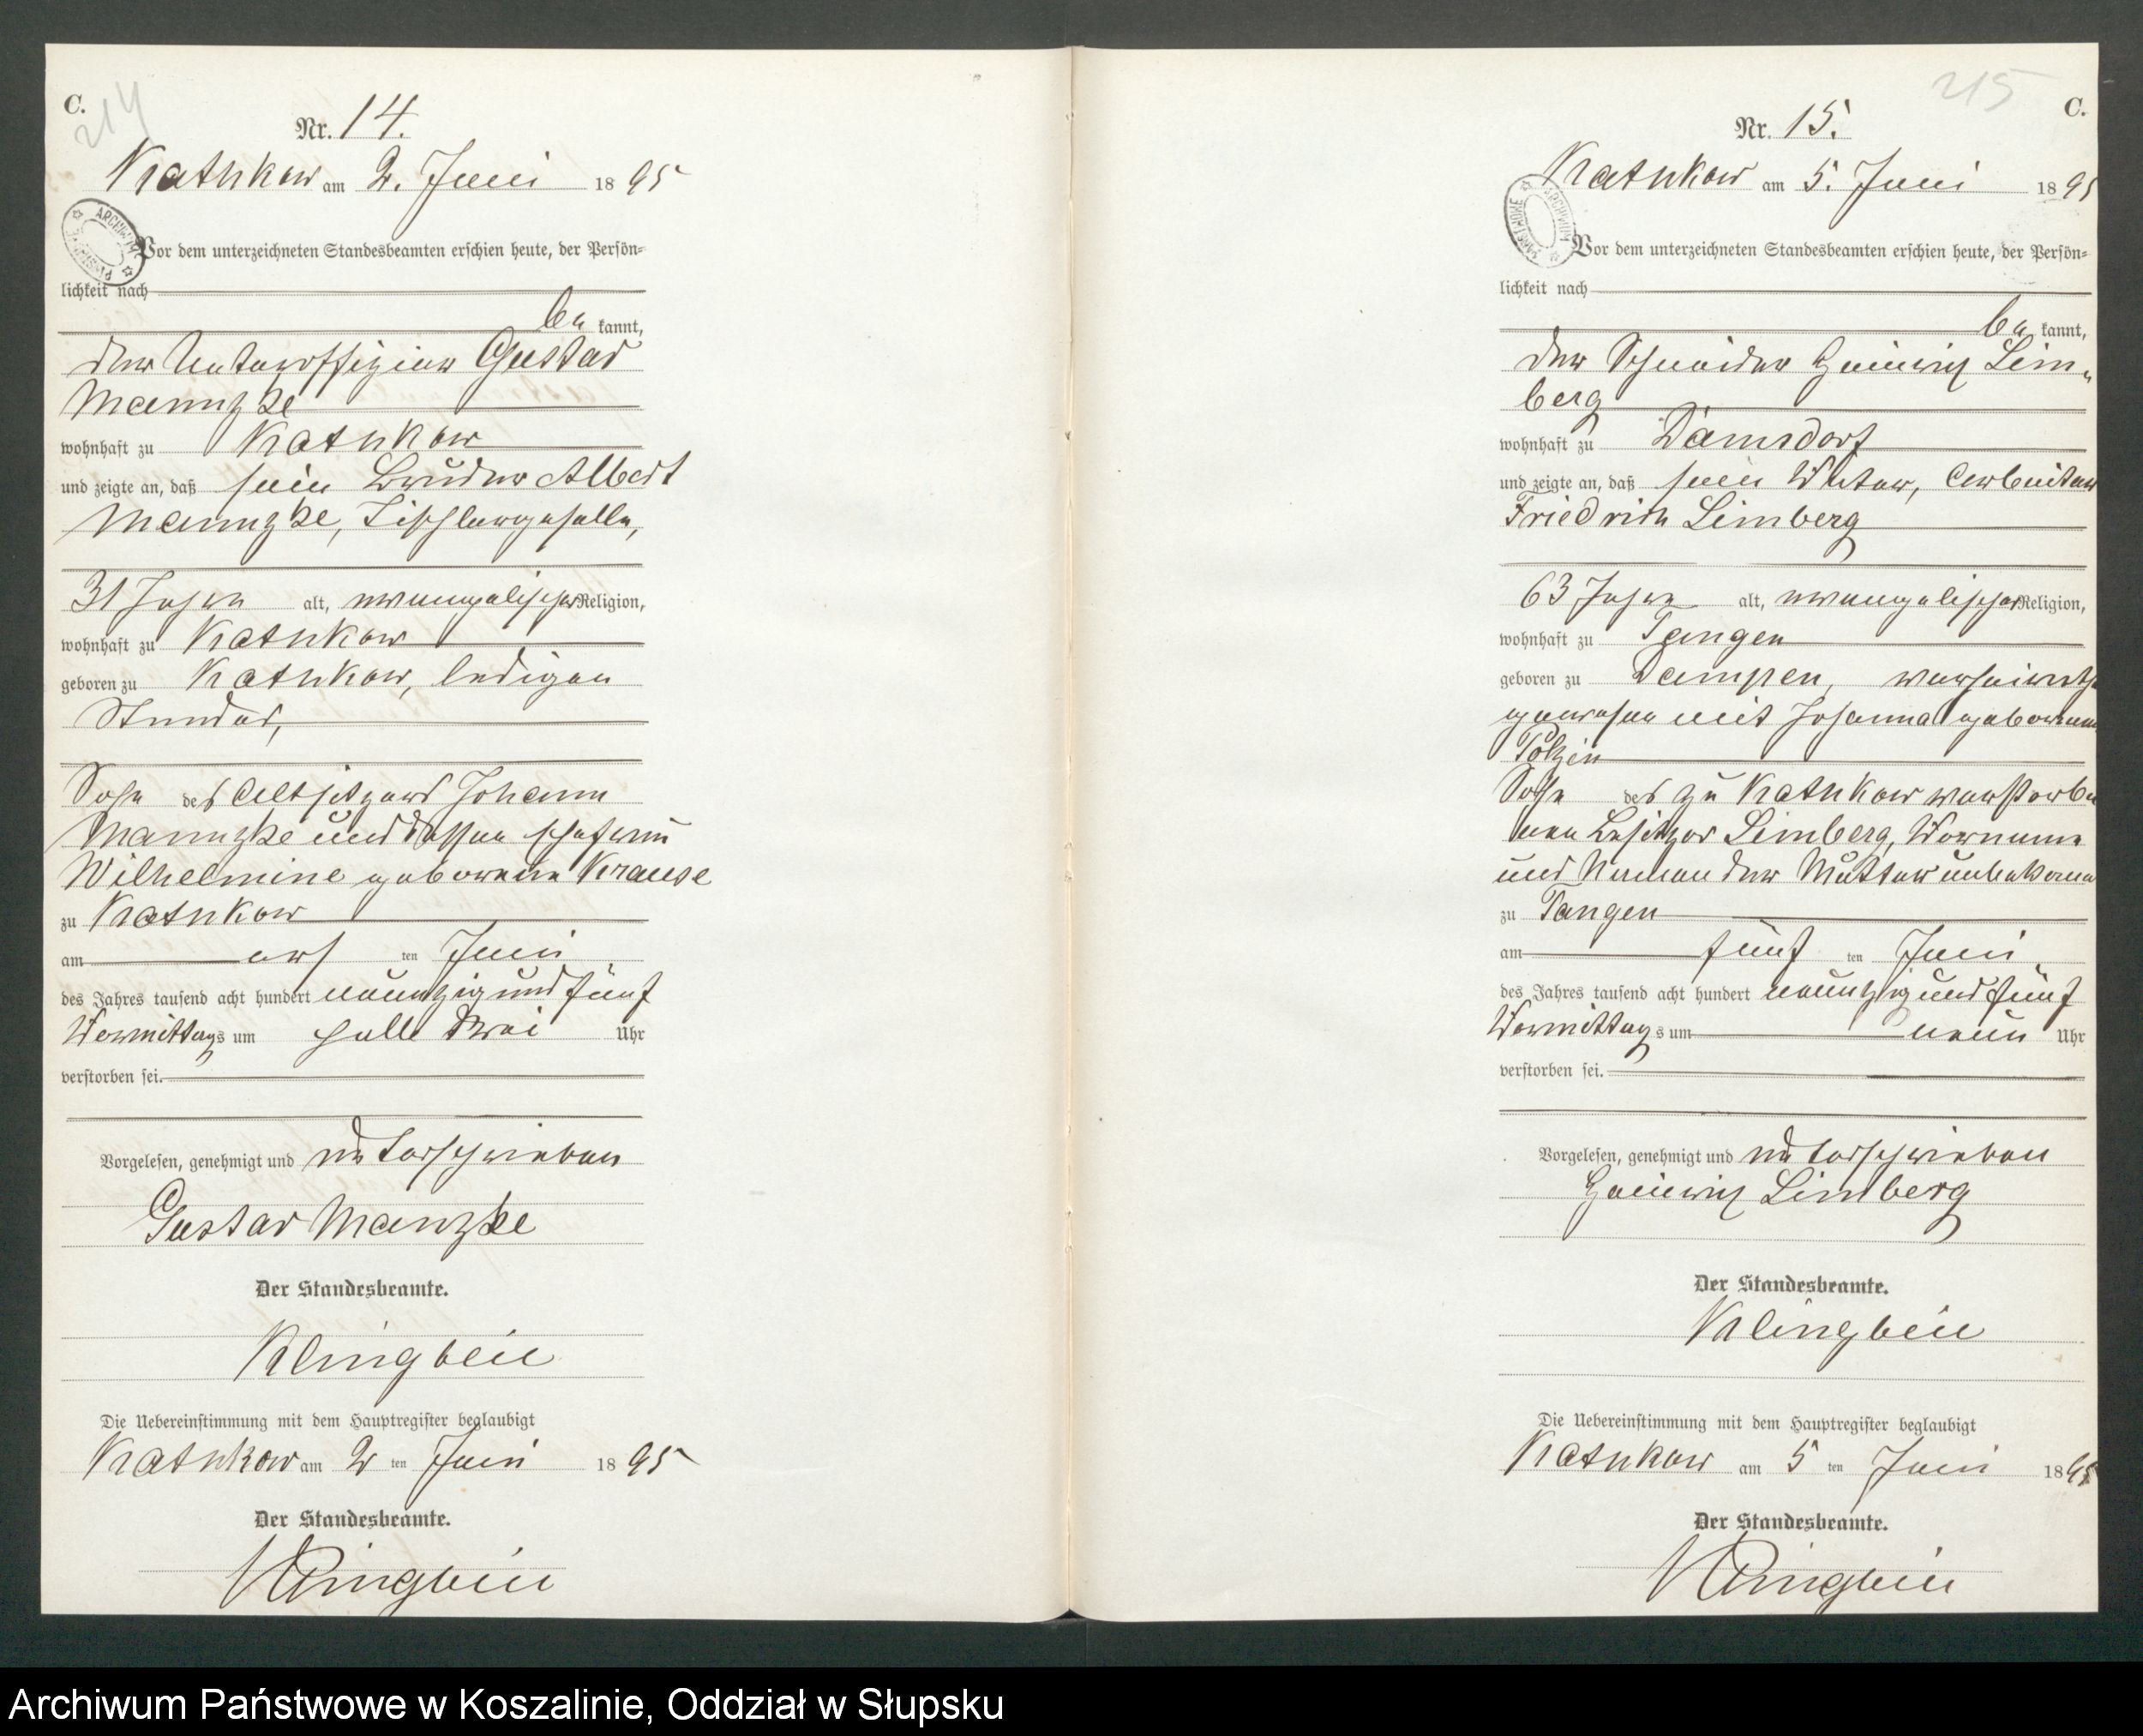 C.
214
Nr. 14.
Kathkow am 2. Juni 1895
ARCHIWUM PAŃSTWOWE
Vor dem unterzeichneten Standesbeamten erschien heute, der Persön-
lichkeit nach
be kannt,
der Unteroffizier Gustav
Manzke
wohnhaft zu Kathkow
und zeigte an, daß sein Bruder Albert
Manzke, Tischlergeselle,
31 Jahre alt, evangelischer Religion,
wohnhaft zu Kathkow
geboren zu Kathkow, ledigen
Standes,
Sohn des Altsitzers Johann
Manzke und dessen Ehefrau
Wilhelmine geborene Krause
zu Kathkow
am ersten Juni
des Jahres tausend acht hundert neunzig und fünf
Vormittags um halb drei Uhr
verstorben sei.
Vorgelesen, genehmigt und unterschrieben
Gustav Manzke
Der Standesbeamte.
Klingbeil
Die Uebereinstimmung mit dem Hauptregister beglaubigt
Kathkow am 2 ten Juni 1895
Der Standesbeamte.
Klingbeil
215
C.
Nr. 15.
Kathkow am 5. Juni 1895
ARCHIWUM PAŃSTWOWE
Vor dem unterzeichneten Standesbeamten erschien heute, der Persön-
lichkeit nach
be kannt,
der Schneider Heinrich Lim-
berg
wohnhaft zu Damsdorf
und zeigte an, daß sein Vater, Arbeiter
Friedrich Limberg
63 Jahre alt, evangelischer Religion,
wohnhaft zu Tangen
geboren zu Dampen, verheirathet
gewesen mit Johanna geborenen
Pölzin
Sohn des zu Kathkow verstorbe
nen Besitzer Limberg, Vorname
und Namen der Mutter unbekannt
zu Tangen
am fünf ten Juni
des Jahres tausend acht hundert neunzig und fünf
Vormittags um neun Uhr
verstorben sei.
Vorgelesen, genehmigt und unterschrieben
Heinrich Limberg
Der Standesbeamte.
Klingbeil
Die Uebereinstimmung mit dem Hauptregister beglaubigt
Kathkow am 5 ten Juni 1895
Der Standesbeamte.
Klingbeil
Archiwum Państwowe w Koszalinie, Oddział w Słupsku